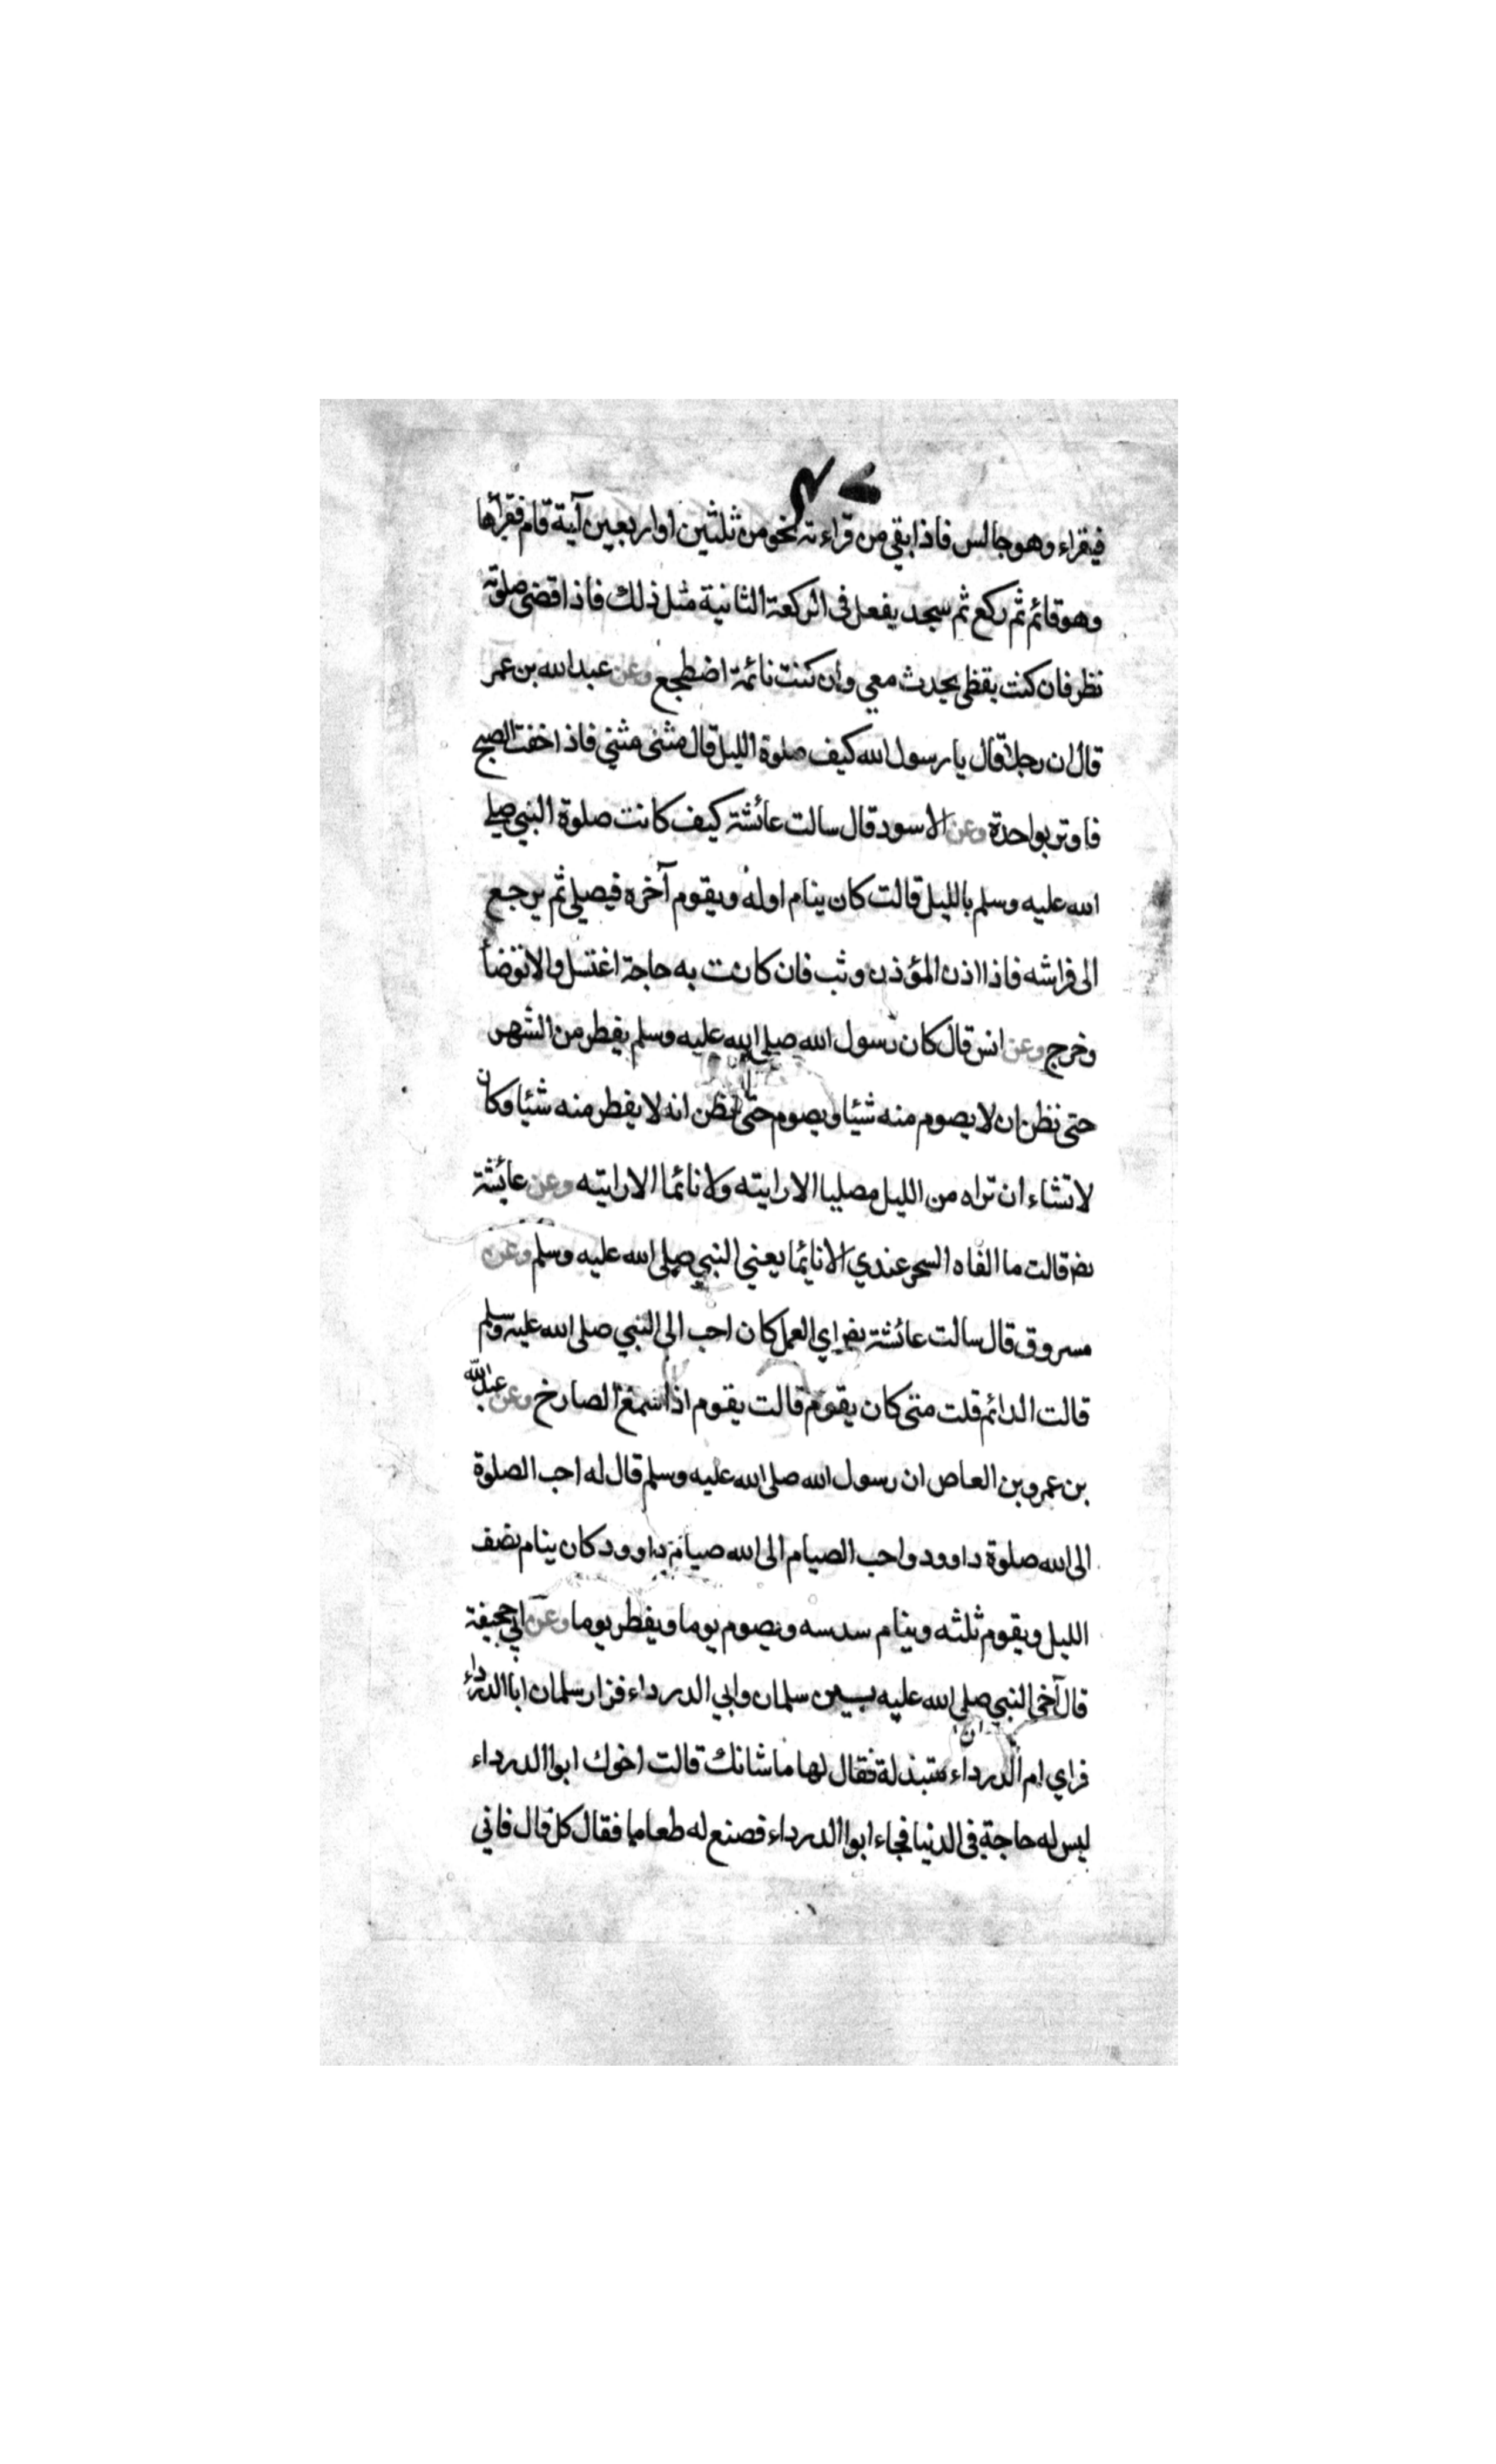 فيقراء وهو جالس فاذا بقي من قراءته نحو من ثلثين او اربعين آية قام فقرأها
وهو قائم ثم ركع ثم سجد يفعل في الركعة الثانية مثل ذلك فاذا قضى صلوته
نظر فان كنت يقظى يحدث معي وان كنت نائمة اضطجع وعن عبد الله بن عمر
قال ان رجلا قال يا رسول الله كيف صلوة الليل قال مثنى مثنى فاذا خفت الصبح
فاوتر بواحدة وعن الاسود قال سالت عائشة كيف كانت صلوة النبي صلى
الله عليه وسلم بالليل قالت كان ينام اوله ويقوم آخره فيصلي ثم يرجع
الى فراشه فاذا اذن المؤذن وثب فان كانت به حاجة اغتسل والا توضأ
وخرج وعن انس قال كان رسول الله صلى الله عليه وسلم يفطر من الشهر
حتى نظن ان لا يصوم منه شيئا ويصوم حتى نظن انه لا يفطر منه شيئا وكان
لا تشاء ان تراه من الليل مصليا الا رايته ولا نائما الا رايته وعن عائشة
رضـ قالت ما الفاه السحر عندي الا نائما يعني النبي صلى الله عليه وسلم وعن
مسروق قال سالت عائشة رضـ اي العمل كان احب الى النبي صلى الله عليه وسلم
قالت الدائم قلت متى كان يقوم قالت يقوم اذا سمع الصارخ وعن عبد الله
بن عمرو بن العاص ان رسول الله صلى الله عليه وسلم قال له احب الصلوة
الى الله صلوة داوود واحب الصيام الى الله صيام داوود كان ينام نصف
الليل ويقوم ثلثه وينام سدسه ويصوم يوما ويفطر يوما وعن ابي جحيفة
قال آخى النبي صلى الله عليه بين سلمان وابي الدرداء فزار سلمان ابا الدرداء
فراي ام الدرداء متبذلة فقال لها ما شانك قالت اخوك ابوا الدرداء
ليس له حاجة في الدنيا فجاء ابوا الدرداء فصنع له طعاما فقال كل قال فاني